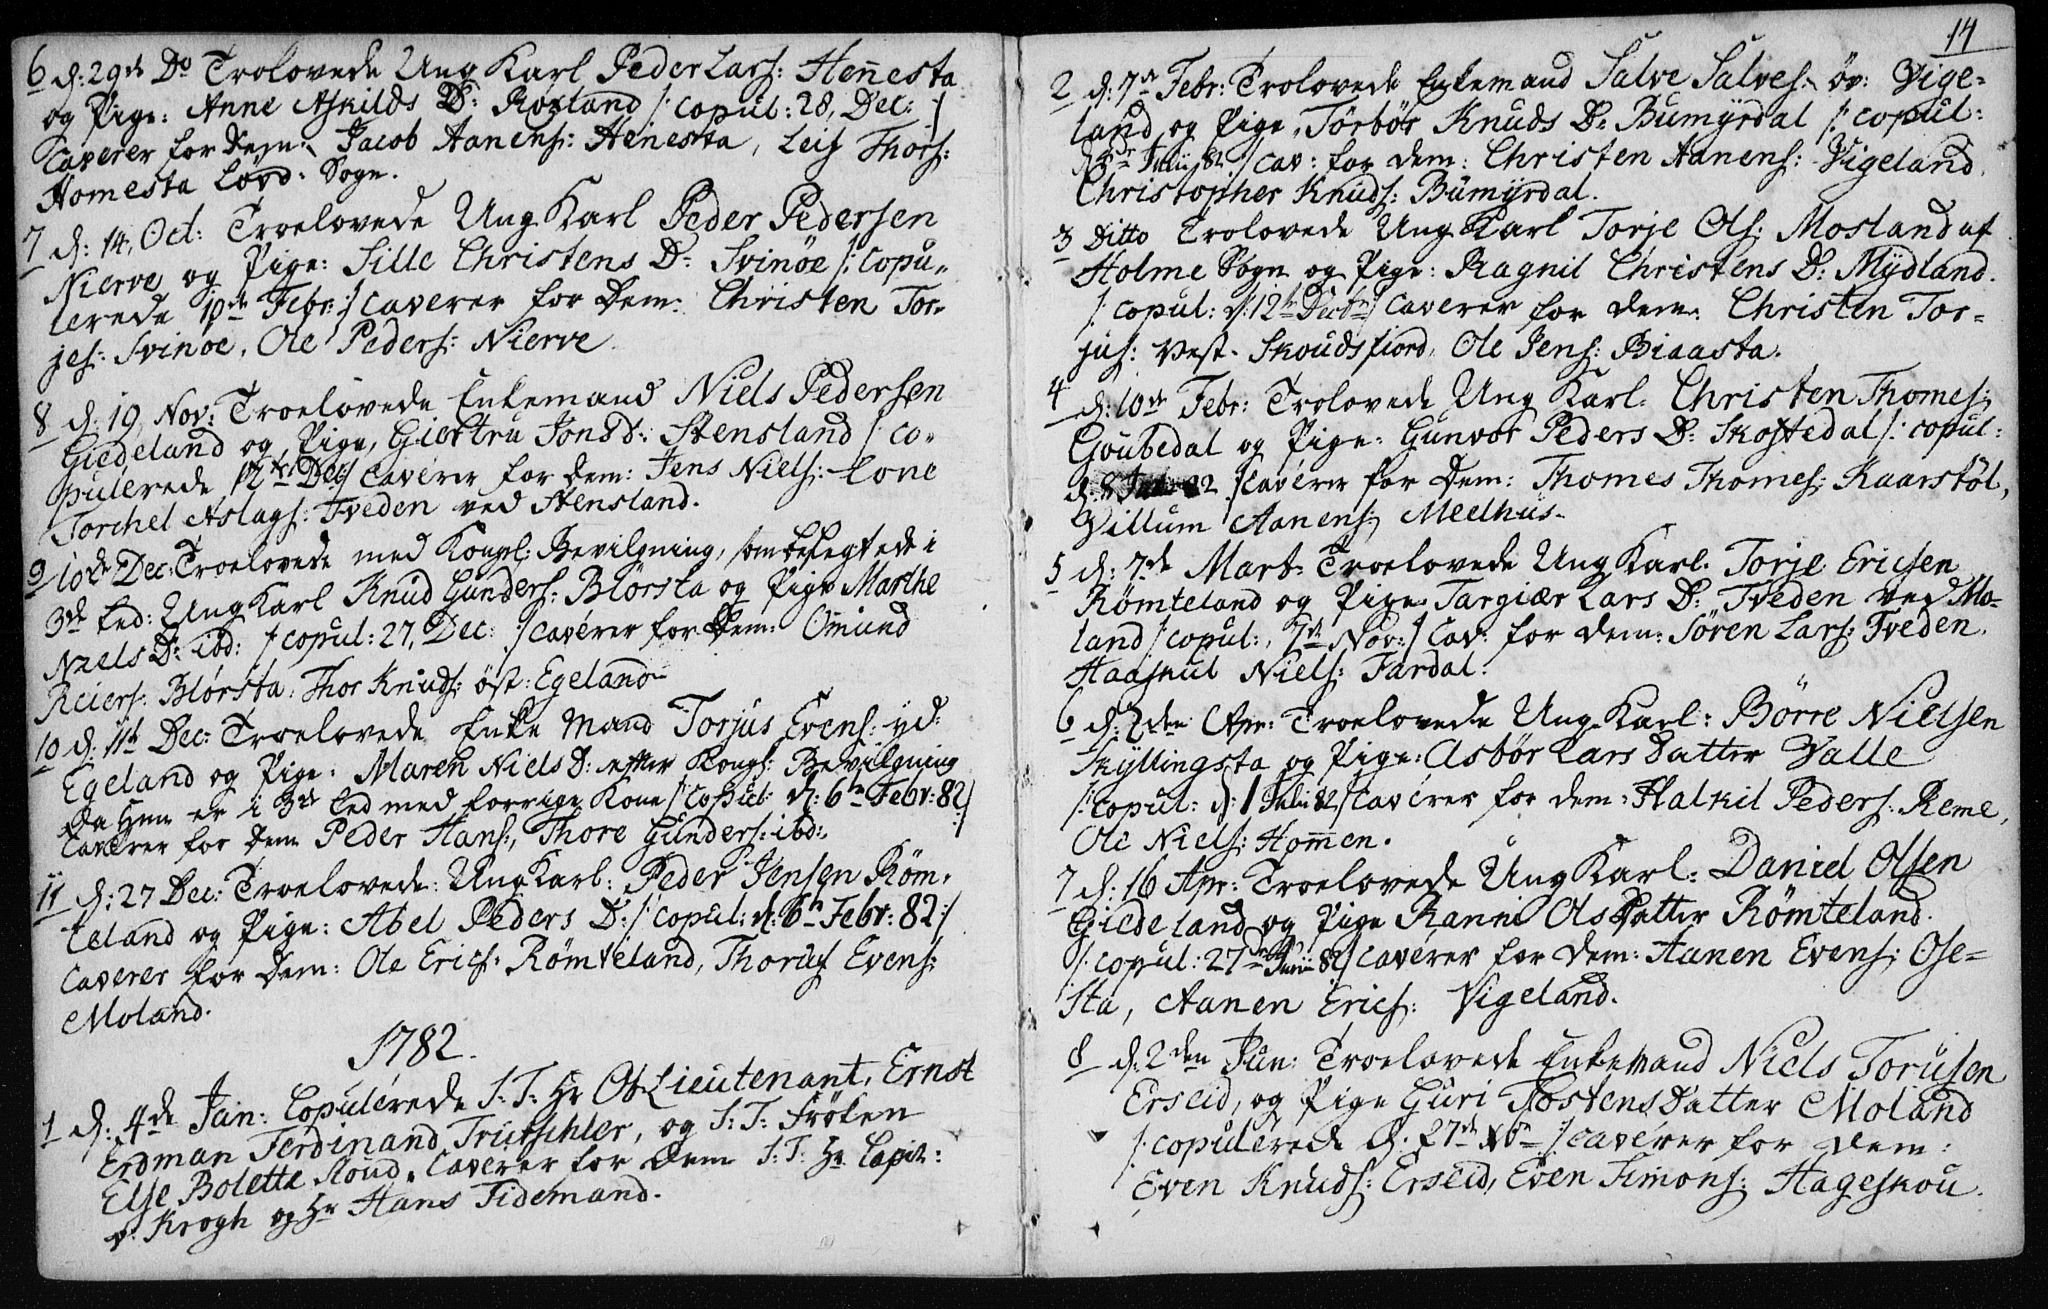 6 d: 29de Do Trolovede Ung Karl Peder Lars: Hennesta
og Pige: Anne Askilds D: Rosland /: copul: 28, Dec: :/
Caverer for Dem: Jacob Aanens: Henesta, Leif Thors:
Homesta Løvd: Sogn.
7 d: 14, Oct: Troelovede Ung Karl Peder Pedersen
Nierve og Pige: Sille Christens D: Svinöe /: Copu„
lerede Febr: :/ Caverer for Dem: Christen Tor„
jes: Svinoe, Ole Peders: Nierve.
8 d: 19, Nov: Troelovede Enkemand Niels Pedersen
Giedeland og Pige, Giertru Jons d: Stensland /: co„
pulerede 12te Dec :/ Caverer for dem: Jens Niels: Lone
Torchel Aslags: Tveden ved Stensland.
9 10de Dec: Troelovede med Kongl: Bevilgning, som beslegtede i
3de Led: Ung Karl Knud Gunders: Blörsta og Pige Marthe
Niels D: ibd: /: copul: 27, Dec: :/ Caverer for Dem: Omund
Reiers: Blörsta, Thor Knuds: öst: Egeland
10 d: 11te Dec: Troelovede Enke Mand Torjus Evens: yd:
Egeland og Pige: Maren Niels D: efter Kongl: Bevilgning
da Hun er i 3de Led med forrige Kone /: Copul: d: 6te Febr: 82 :/
Caverer for Dem Peder Hans:, Thore Gunders: ibd:
11 d: 27 Dec: Troelovede: Ung Karl: Peder Jensen Röm„
teland og Pige: Abel Peders D: /: copul: d: 6te Febr: 82 :/
Caverer for Dem: Ole Erics: Römteland, Thorus Evens:
Moland.
1782.
1 d: 4de Jan: Copulerede S: T: Hr Ob: Lieutenant, Ernst
Erdman Ferdinand Trutschler, og S: T: Fröken
Else Bolette Stoud. Caverer for Dem S: T: Hr Capit:
v: Krogh og Hr Hans Tidemand.
14
2 d: 7de Febr: Trolovede Enkemand Salve Salves: öv: Vige=
land og Pige, Törbör Knuds D: Bumyrdal /: copul:
82 :/ Cav: for dem: Christen Aanens: Vigeland,
Christopher Knuds: Bumyrdal.
3 Ditto Trolovede Ung Karl Torje Ols: Mosland af
Holme Sogn og Pige: Ragnil Christens D: Mydland.
/: copul: d: 12te :/ Caverer for dem: Christen Tor=
jus: Vest- Skoudsfiord, Ole Jens: Biaasta.
4 d: 10de Febr: Trolovede Ung Karl: Christen Thomes:
Goubedal og Pige: Gunvor Peders D: Skoftedal /: copul:
d: 8 :/ Caverer for Dem: Thomes Thomes: Kaarstøl,
Villum Aanens: Meelhus.
5 d: 7de Mart: Troelovede Ung Karl: Torje Ericsen
Römteland og Pige: Targiær Lars D: Tveden ved Mo=
land /: copul:, 7de Nov: :/ Cav: for dem: Sören Lars: Tveden,
Haaskul Niels: Fardal.
6 d: 2den Apr: Troelovede Ung Karl: Börre Nielsen
Skyllingsta og Pige: Asbör Lars Datter Valle
/: copul: d: 1 82 :/ Caverer for dem: Halkil Peders: Reme,
Ole Niels: Hommen.
7 d: 16 Apr: Troelovede Ung Karl: Daniel Olsen
Giedeland og Pige Ranni Ols Datter Römteland.
/: copul: 27de Junii 82 :/ Caverer for Dem: Aanen Evens: Ose=
sta, Aanen Erics: Vigeland.
8 d: 2den Jun: Troelovede Enkemand Niels Torusen
Erseid, og Pige Guri Tostens Datter Moland
/: copulerede d: 27de :/ Caverer for dem:
Even Knuds: Erseid, Even Simons: Hageskou.